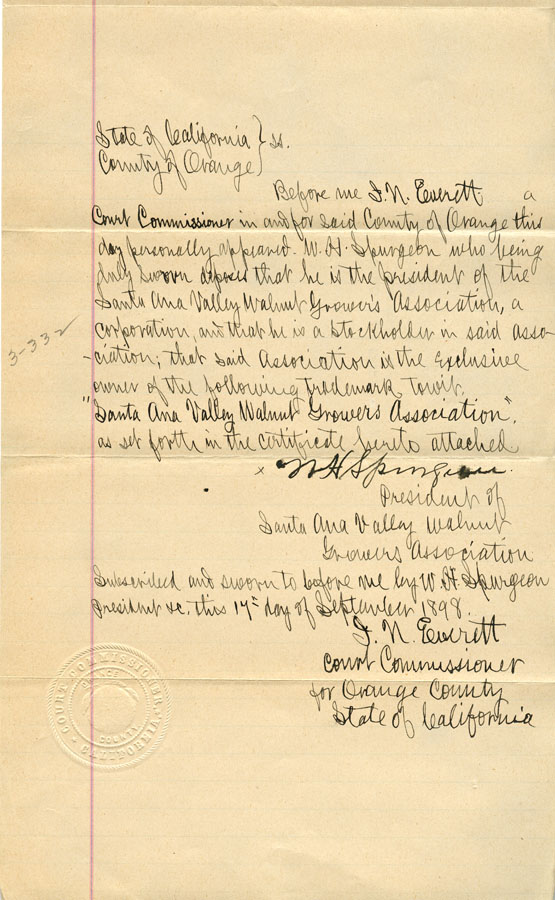 State of California } ss.
County of Orange }
Before me I. N. Everett a
Court Commissioner in and for said County of Orange this
day personally appeared W. H. Spurgeon who being
duly sworn deposes that he is the president of the
Santa Ana Valley Walnut Grower's Association, a
corporation, and that he is a stockholder in said Asso-
-ciation; that said Association is the exclusive
owner of the following trademark to wit,
"Santa Ana Valley Walnut Growers Association",
as set forth in the certificate hereto attached
x W H Spurgeon.
President of
Santa Ana Valley Walnut
Growers Association
Subscribed and sworn to before me by W. H. Spurgeon
President &c. this 17th day of September 1898.
I. N. Everett
Court Commissioner
for Orange County
State of California
3-332
COURT COMMISSIONER,
COUNTY
CALIFORNIA